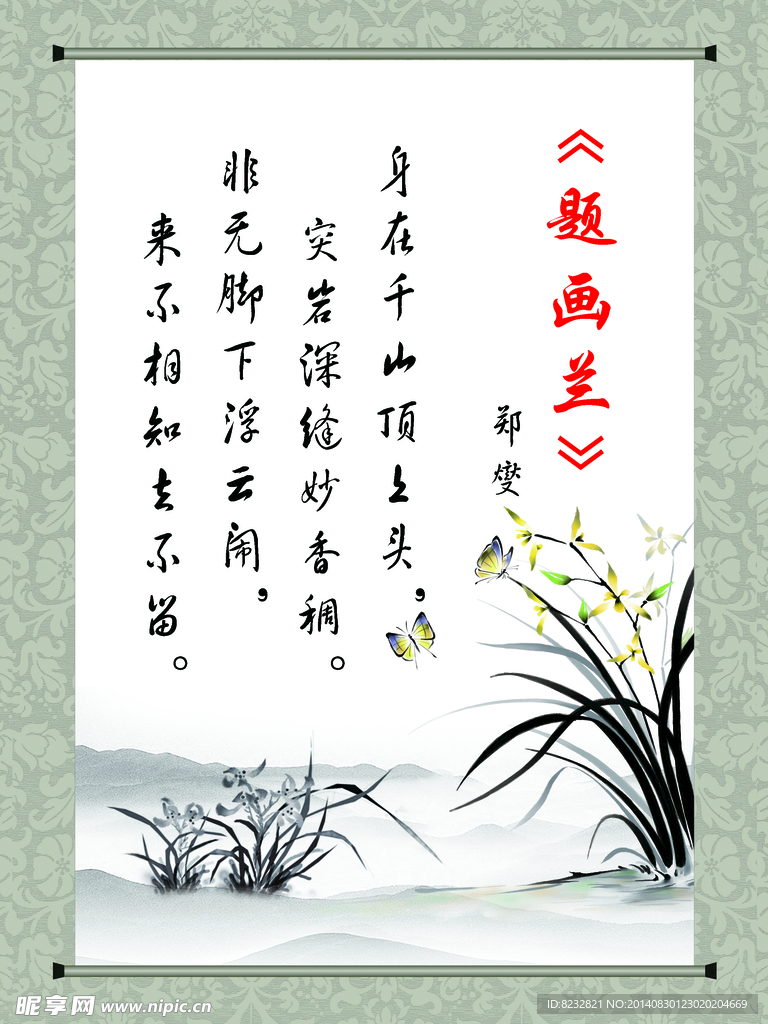 《题画兰》
郑燮
身在千山顶上头，
突岩深缝妙香稠。
非无脚下浮云闹，
来不相知去不留。
昵享网 www.nipic.cn
ID:8232821 NO:20140830123020204669